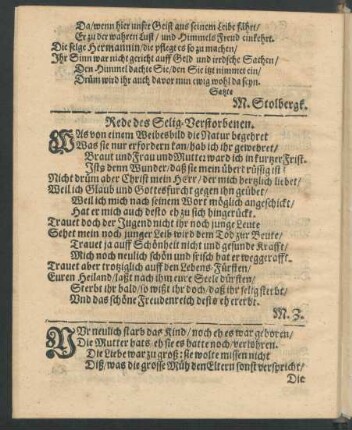 Da/wenn hier unser Geist aus seinem Leibe fähret/
Er zu der wahren Lust/ und Himmels Freud einkehrt.
Die selge Hermannin/die pflegt es so zu machen/
Ihr Sinn war nicht gericht auff Geld und irrdsche Sachen/
Den Himmel dachte Sie/ den Sie itzt nimmet ein/
Drüm wird ihr auch davor nun ewig wohl da seyn.
Satzte
M. Stolbergk.
Rede des Selig-Verstorbenen.
WAs von einem Weibesbild die Natur begehret
Was sie nur erfordern kan/hab ich ihr gewehret/
Braut und Frau und Mutter ward ich in kurtzer Frist.
Ists denn Wunder/daß sie mein überdrüßig ist?
Nicht drüm aber Christ mein Herr/ der mich hertzlich liebet/
Weil ich Glaub und Gottesfurcht gegen ihn geübet/
Weil ich mich nach seinem Wort möglich angeschickt/
Hat er mich auch desto eh zu sich hingerückt.
Trauet doch der Jugend nicht ihr noch junge Leute
Sehet mein noch junger Leib wird dem Tod zur Beute/
Trauet ja auff Schönheit nicht und gesunde Krafft/
Mich noch neulich schön und frisch hat er weggerafft.
Trauet aber trotziglich auff den Lebens-Fürsten/
Euren Heiland/laßt nach ihm eure Seele dürsten/
Sterbt ihr bald/ so wißt ihr doch/daß ihr selig sterbt/
Und das schöne Freudenreich desto eh ererbt.
M. Z.
NUr neulich starb das Kind/noch eh es war geboren/
Die Mutter hats eh sie es hatte noch/verlohren.
Die Liebe war zu groß: sie wolte missen nicht
Diß/was die grosse Müh den Eltern sonst verspricht/
Die